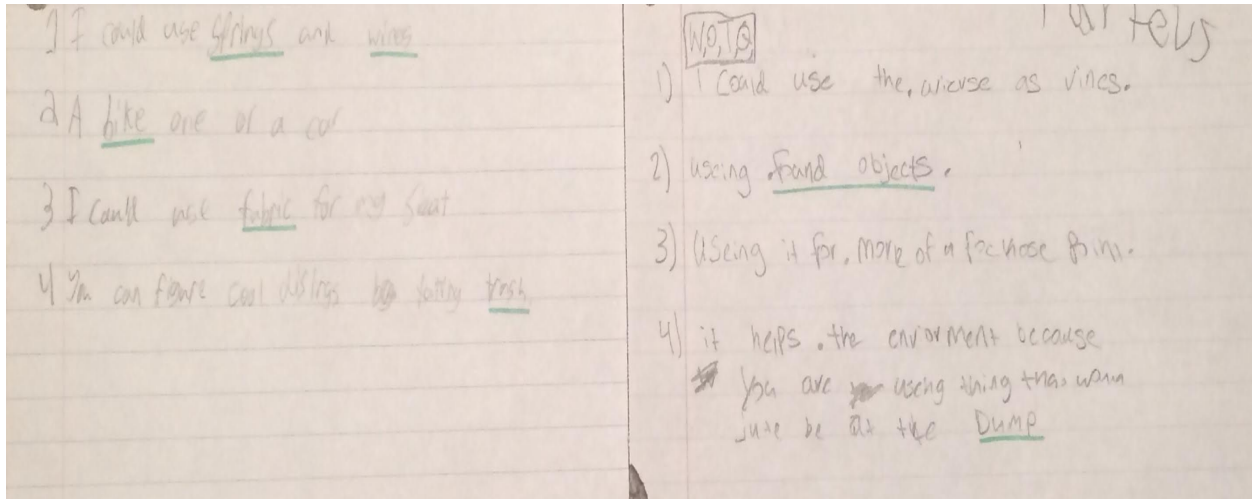 1 I could use springs and wires
2 A bike one or a car
3 I could use fabric for my seat
4 You can figure cool by trash
W,O,T,Q,
1) I could use the, as vines.
2) useing found objects.
3) Useing it for, more of a
4) it helps. the enviorment because
you are useng thing that
juste be at the Dump